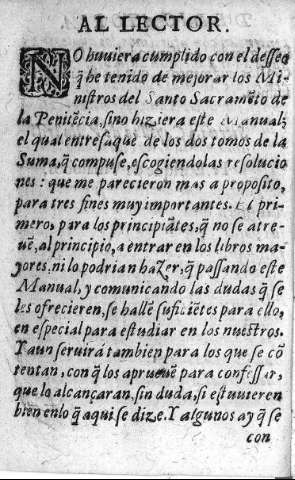 AL LECTOR.
NO huuiera cumplido con el desseo
q̃ he tenido de mejorar los Mi-
nistros del Santo Sacramẽto de
la Penitẽcia, sino hiziera este Manual;
el qual entresaquè de los dos tomos de la
Suma, q̃ compuse, escogiendolas resolucio
nes: que me parecieron mas a proposito,
para tres fines muy importantes. El pri-
mero, para los principiãtes, q̃ no se atre-
uẽ, al principio, a entrar en los libros ma-
yores, ni lo podrian hazer, q̃ passando este
Manual, y comunicando las dudas q̃ se
les ofrecieren, se hallẽ suficiẽtes para ello,
en especial para estudiar en los nuestros.
Y aun seruirà tambien para los que se cõ
tentan, con q̃ los aprueuẽ para confessar,
que lo alcançaran, sin duda, si estuuieren
bien enlo q̃ aqui se dize. Y algunos ay q̃ se
con